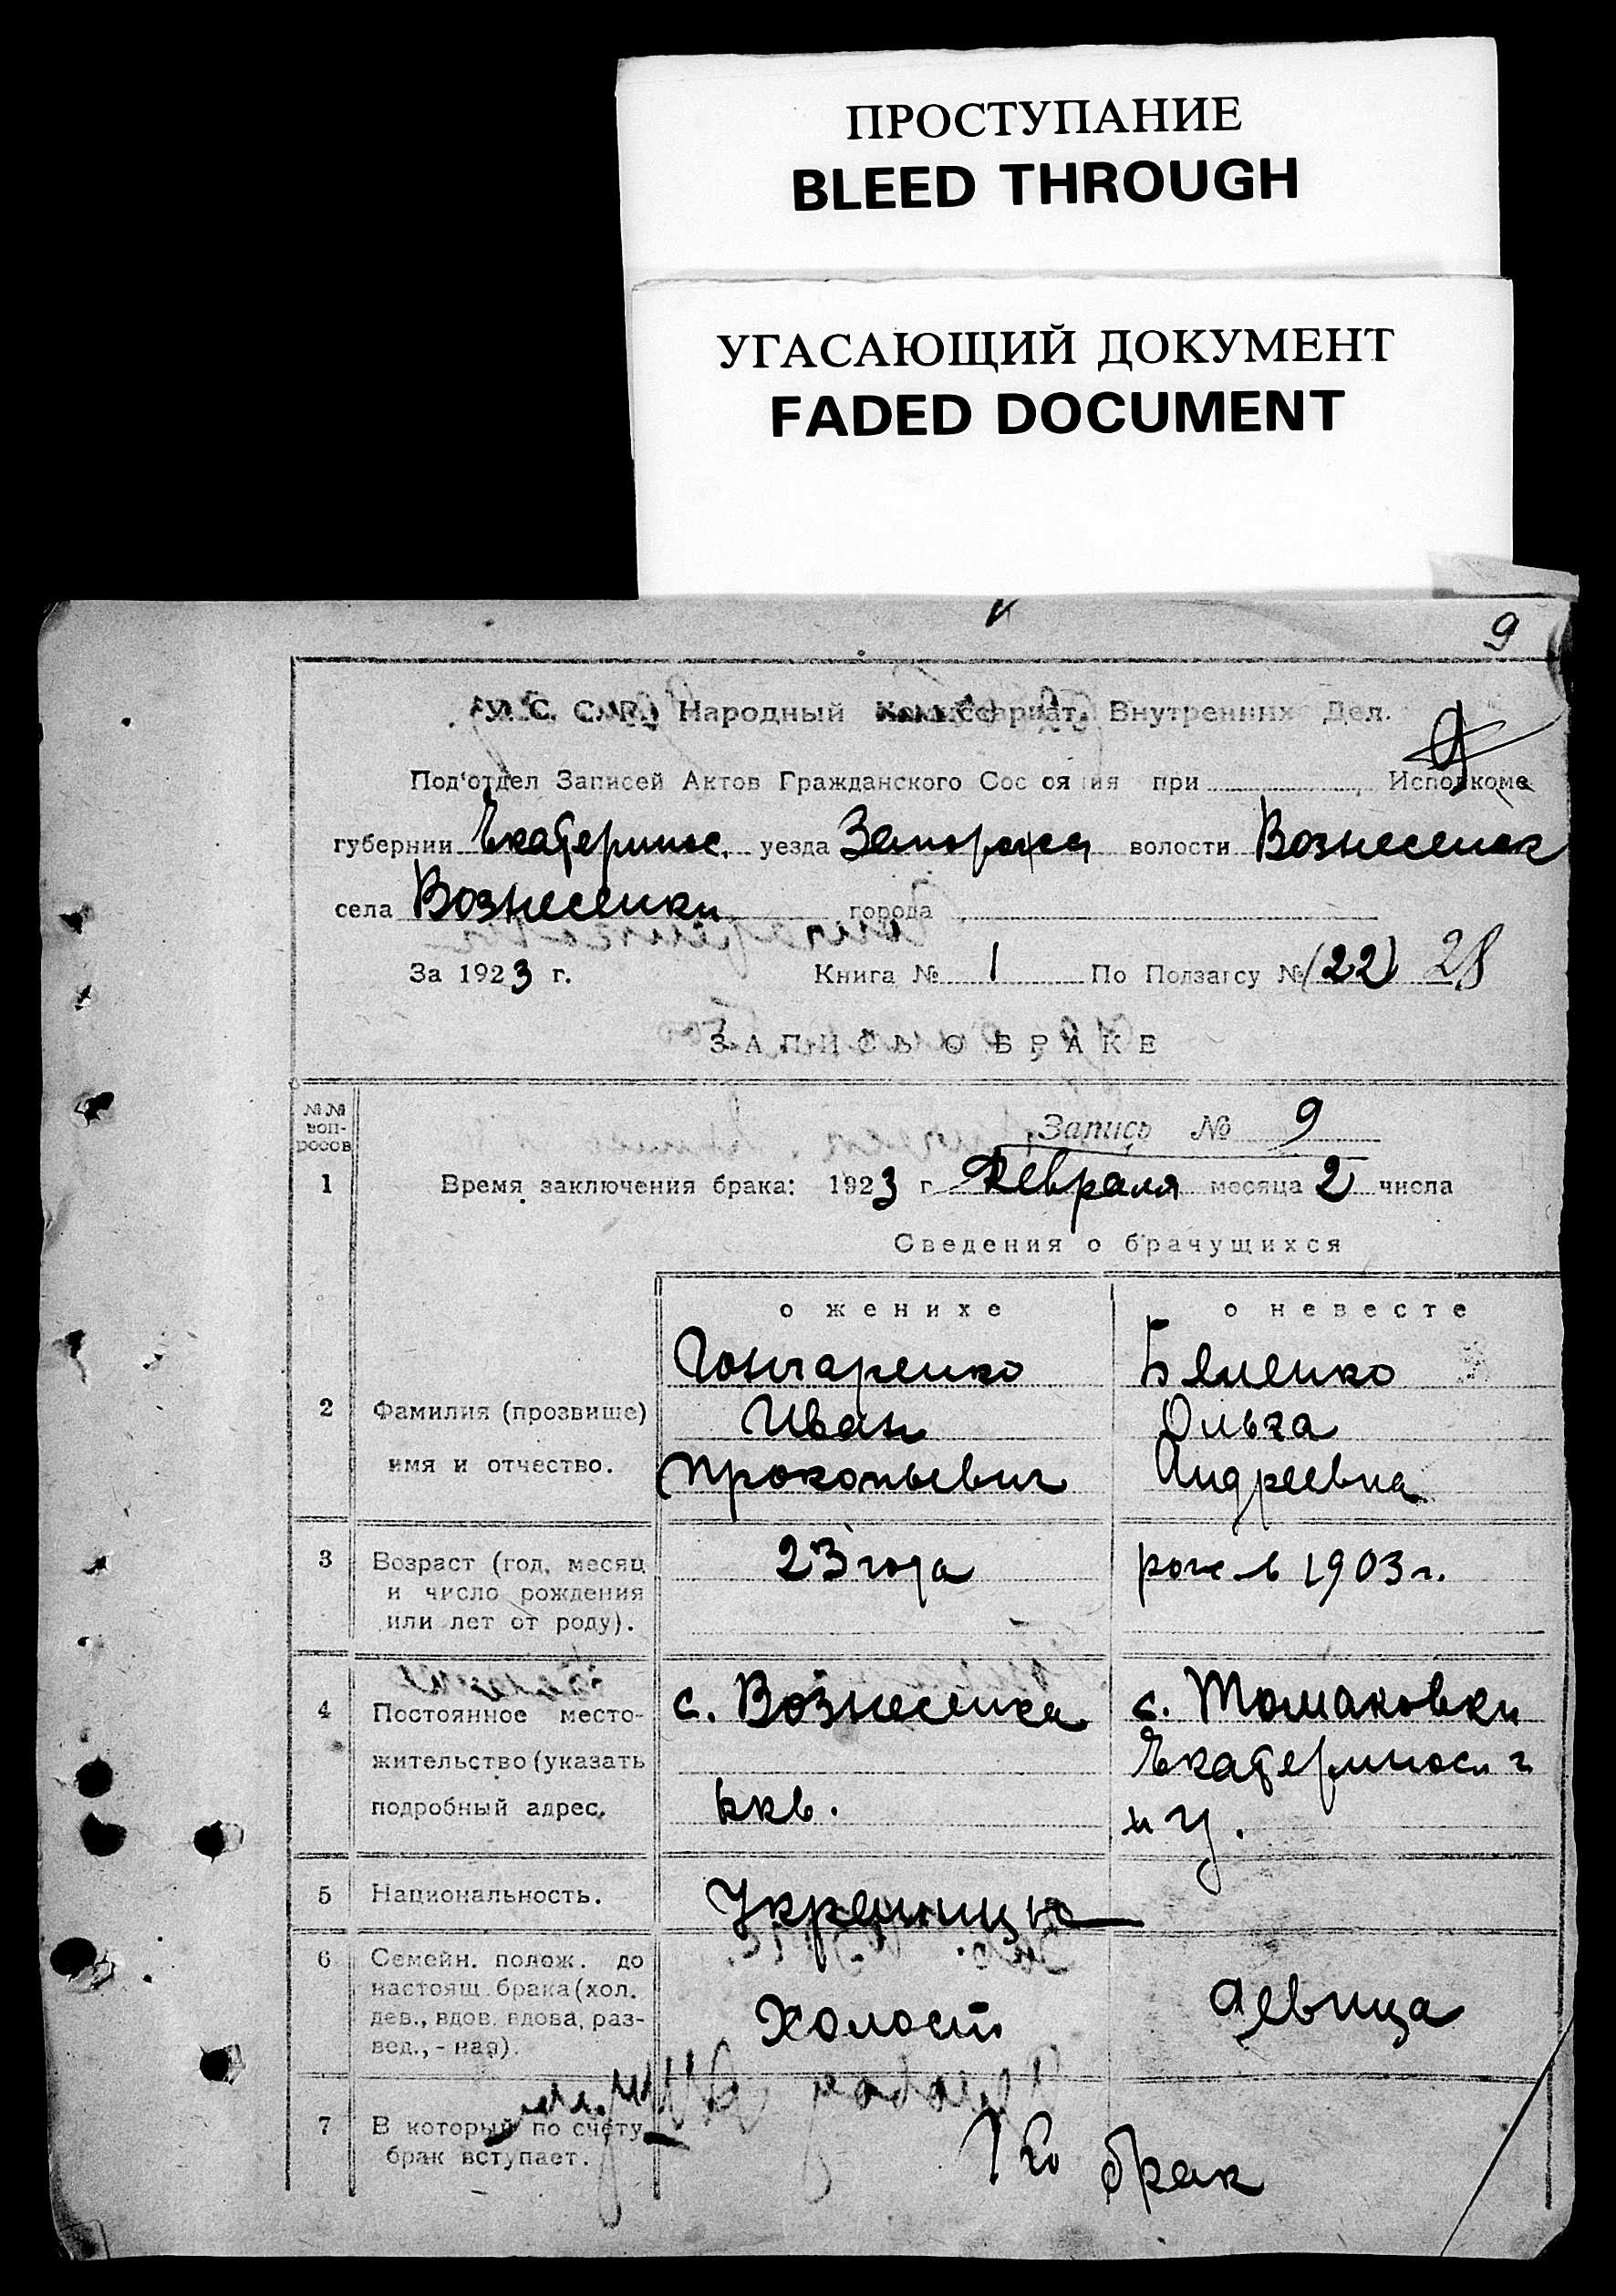 ПРОСТУПАНИЕ
BLEED THROUGH
УГАСАЮЩИЙ ДОКУМЕНТ
FADED DOCUMENT
9
У. С. С. Р. Народный Комиссариат Внутренних Дел.
Под'отдел Записей Актов Гражданского Сос оя ия при Исполкоме
губернии Екатеринос. уезда Запорожск волости Вознесенск
села Вознесенки города
За 1923 г. Книга № 1 По Ползагсу № (22) 28
ЗАПИСЬ О БРАКЕ
№№ воп-росов
Запись № 9
1 Время заключения брака: 1923 г. Февраля месяца 2 числа
Сведения о брачущихся
о женихе о невесте
Гончаренко Беленко
2 Фамилия (прозвище) Иван Ольга
имя и отчество. Прокопьевич Андреевна
3 Возраст (год, месяц 23 года рож в 1903 г.
и число рождения
или лет от роду).
4 Постоянное место- с. Вознесенка с. Томаковки
жительство (указать Екатериносл г
подробный адрес. ккв. и у.
5 Национальность. Украинцы
6 Семейн. полож. до
настоящ. брака (хол. Холост девица
дев., вдов. вдова, раз-
вед.,-ная).
7 В который по счету 1ый брак
брак вступает.